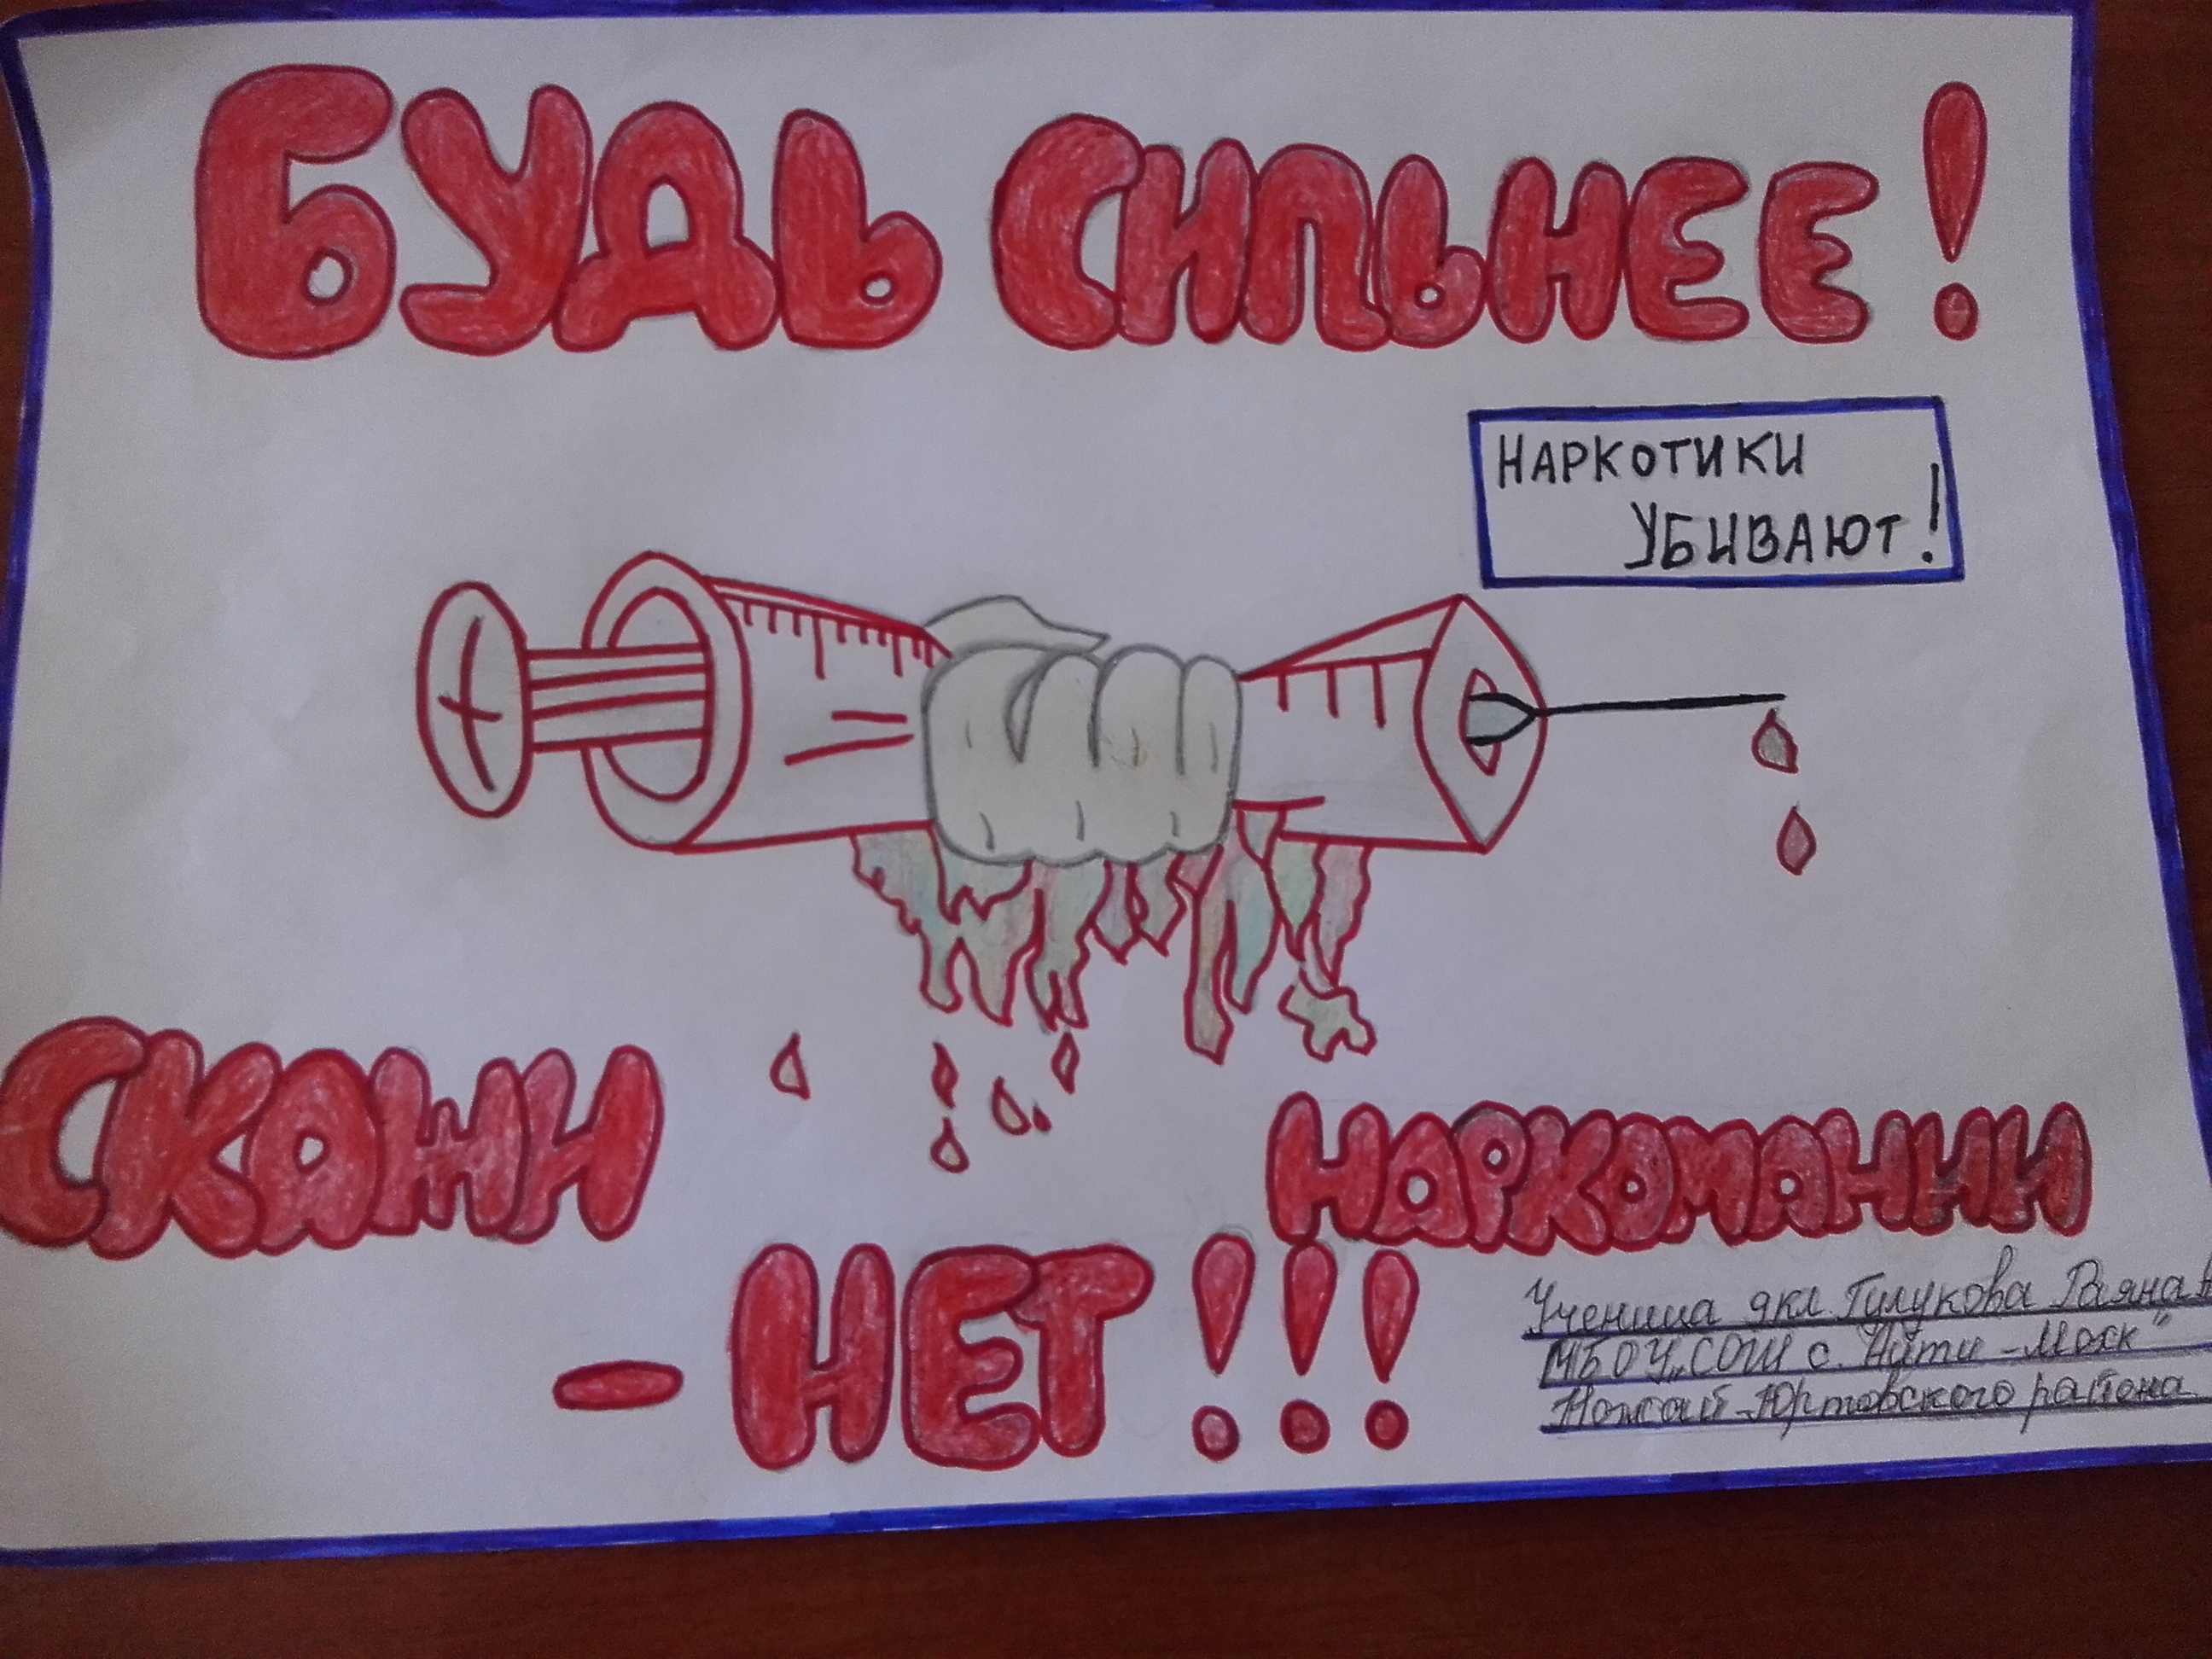 БУДЬ СИЛЬНЕЕ!
НАРКОТИКИ
УБИВАЮТ!
СКАЖИ
НАРКОМАНИИ
- НЕТ!!!
Ученица 9кл. Гилукова Раяна
МБОУ „СОШ с. Айти-Мохк"
Ножай-Юртовского района